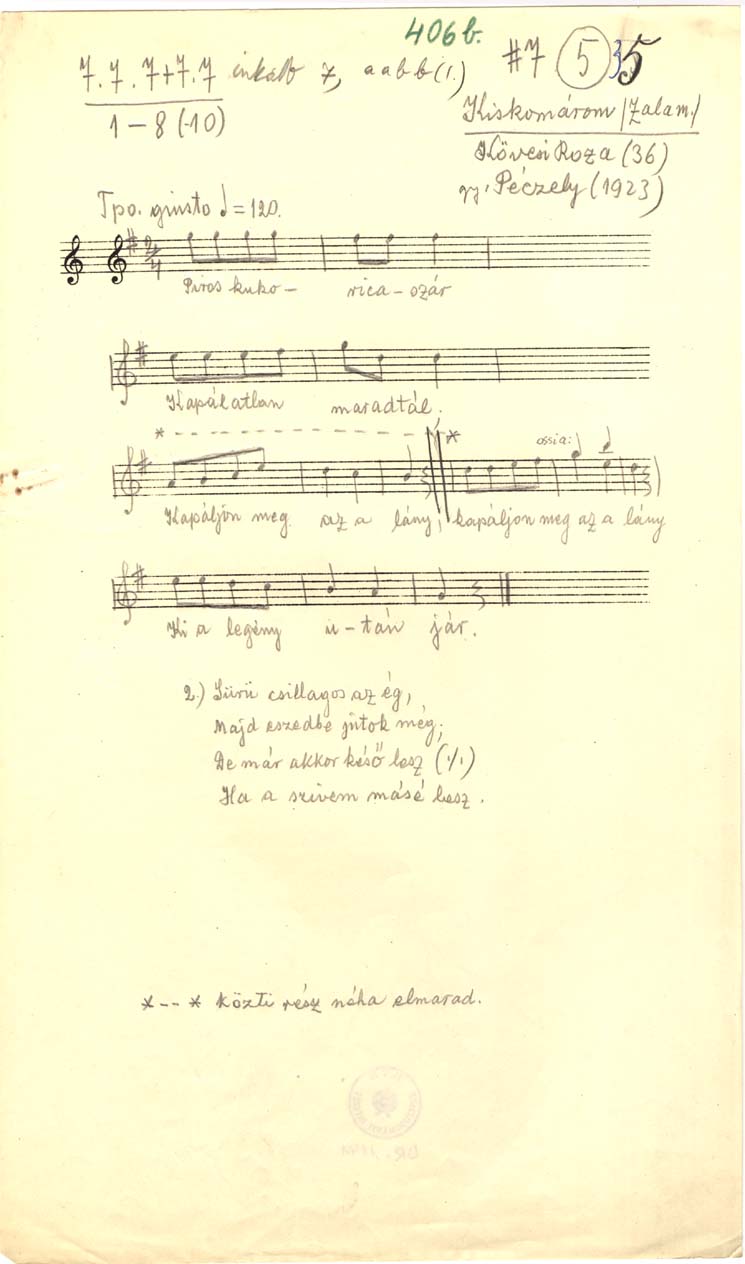 406b.
7.7.7+7.7 inkább 7, a a b b (1.)
#7 5 35
1-8 (-10)
Kiskomárom /Zalam./
Kövesi Roza (36)
gy. Péczely (1923)
Tpo. giusto ♩=120.
2/4
Piros kuko- rica-szár
Kapálatlan maradtál.
* - - - - - - - - - - - - *
ossia:
Kapáljon meg az a lány, kapáljon meg az a lány
Ki a legény u-tán jár.
2.) Sürü csillagos az ég,
Majd eszedbe jutok még;
De már akkor késő lesz (./.)
Ha a szivem másé lesz.
*--* közti rész néha elmarad.